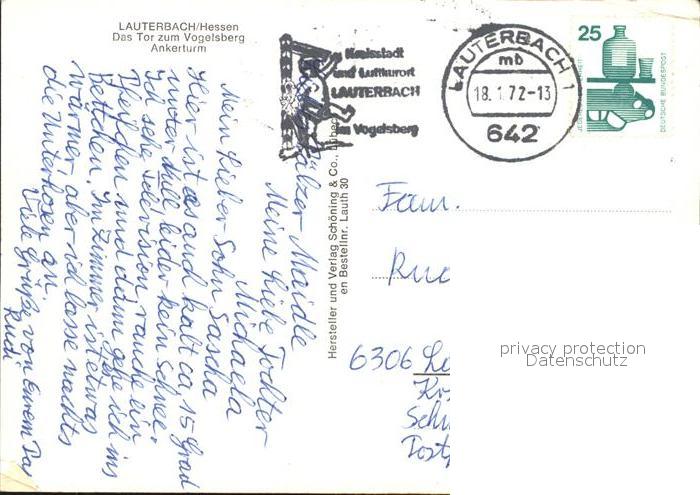 LAUTERBACH/Hessen
Das Tor zum Vogelsberg
Ankerturm
Kreisstadt
und Luftkurort
LAUTERBACH
im Vogelsberg
LAUTERBACH 1
mb
18.1.72-13
642
25
DEUTSCHE BUNDESPOST
Hersteller und Verlag Schöning & Co.,
en Bestellnr. Lauth 30
Pfälzer Maidle
Meine liebe Tochter
Michaela
Mein lieber Sohn Sascha
Hier ist es auch kalt ca 15 Grad
unter Null leider kein Schnee.
Ich sehe Television rauche ein
Pfeifchen und dann gehe ich ins
Bettchen. Im Zimmer ist etwas
wärmer, aber ich lasse nachts
die Unterhosen an.
Viele Grüße von Eurem Pa
Rudi
Fam.
Rud
6306
privacy protection
Datenschutz